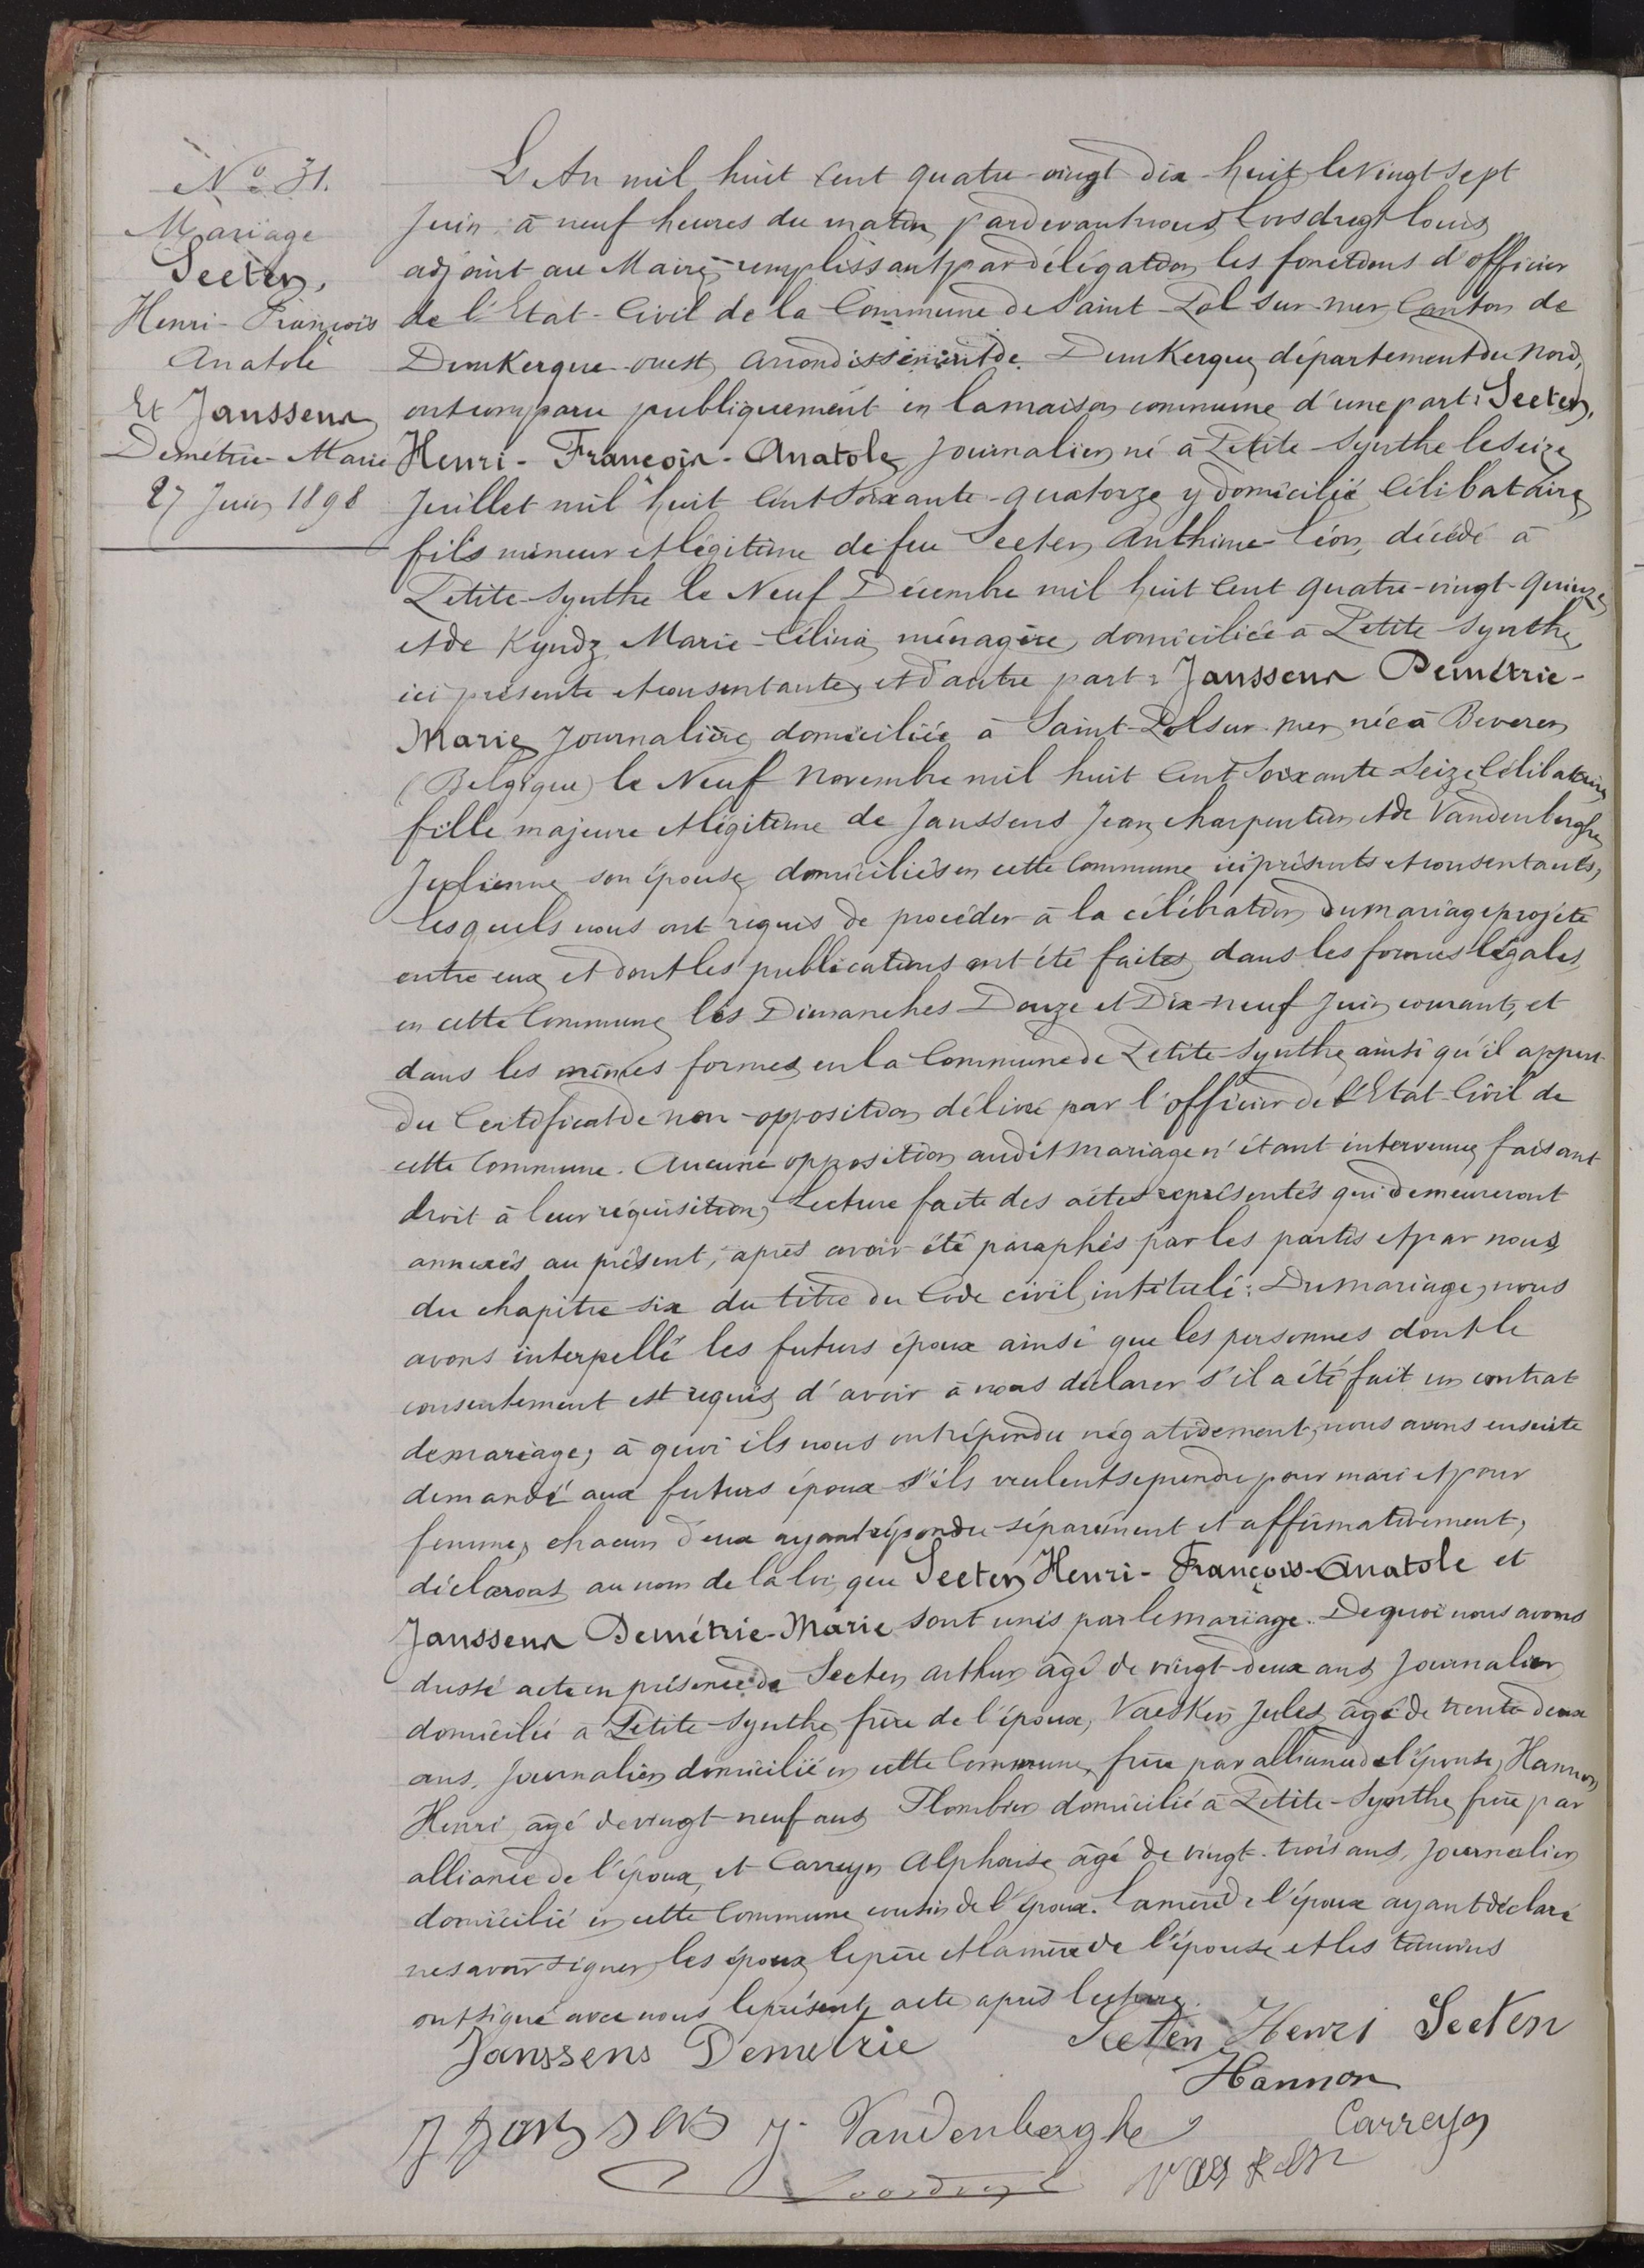 No 31.
Mariage
Seeten,
Henri-François
Anatole
Et Janssens
Demétrie-Marie
27 Juin 1898
L'An mil huit cent quatre-vingt dix-huit le vingt sept
Juin à neuf heures du matin pardevant nous Loosdregt Louis
adjoint au Maire, remplissant par délégation les fonctions d'officier
de l'Etat-Civil de la Commune de Saint-Pol-sur-mer Canton de
Dunkerque-ouest, arrondissement de Dunkerque, département du Nord,
ont comparu publiquement en la maison commune d'une part: Seeten,
Henri-François-Anatole, Journalier, né à Petite-Synthe le Seize
Juillet mil huit cent soixante-quatorze y domicilié Célibataire,
fils mineur et légitime de feu Seeten Anthime-Léon, décédé à
Petite-Synthe le Neuf Décembre mil huit cent quatre-vingt-quinze,
et de Kyndz Marie-Célina, ménagère, domiciliée à Petite-Synthe,
ici présente et consentante, et d'autre part: Janssens Demétrie-
Marie, Journalière, domiciliée à Saint-Pol sur mer, née à Beveren
(Belgique) le Neuf novembre mil huit cent soixante-seize, Célibataire,
fille majeure et légitime de Janssens Jean, charpentier et de Vandenberghe
Julienne son épouse, domiciliés en cette commune, ici présents et consentants,
lesquels nous ont requis de procéder à la célébration du mariage projeté
entre eux et dont les publications ont été faites dans les formes légales
en cette Commune les Dimanches Douze et Dix-neuf Juin courant, et
dans les mêmes formes en la Commune de Petite-Synthe, ainsi qu'il appert
du Certificat de non-opposition délivré par l'officier de l'Etat-Civil de
cette Commune. Aucune opposition audit mariage n'étant intervenue, faisant
droit à leur réquisition, Lecture faite des actes représentés qui demeureront
annexés au présent, après avoir été paraphés par les parties et par nous,
du chapitre six du titre du Code civil, intitulé: Du mariage, nous
avons interpellé les futurs époux ainsi que les personnes dont le
consentement est requis, d'avoir à nous déclarer s'il a été fait un contrat
de mariage, à quoi ils nous ont répondu négativement, nous avons ensuite
demandé aux futurs époux s'ils veulent se prendre pour mari et pour
femme, chacun d'eux ayant répondu séparément et affirmativement,
déclarons au nom de la loi, que Seeten Henri-François-Anatole et
Janssens Demétrie-Marie sont unis par le mariage. De quoi nous avons
dressé acte en présence de Seeten Arthur, âgé de vingt-deux ans, Journalier
domicilié à Petite-Synthe, frère de l'époux, Vaesken Jules, âgé de trente-deux
ans, Journalier domicilié en cette Commune, frère par alliance de l'épouse, Hannon
Henri, âgé de vingt-neuf ans, Plombier domicilié à Petite-Synthe, frère par
alliance de l'époux, et Carreyn Alphonse, âgé de vingt-trois ans, Journalier
domicilié en cette Commune, cousin de l'époux. La mère de l'époux ayant déclaré
ne savoir signer, les époux, le père et la mère de l'épouse et les témoins
ont signé avec nous le présent acte après lecture.
Janssens Demetrie Seeten Henri Seeten
Hannon
J Janssens J. Vandenberghe Carreyn
Vaesken